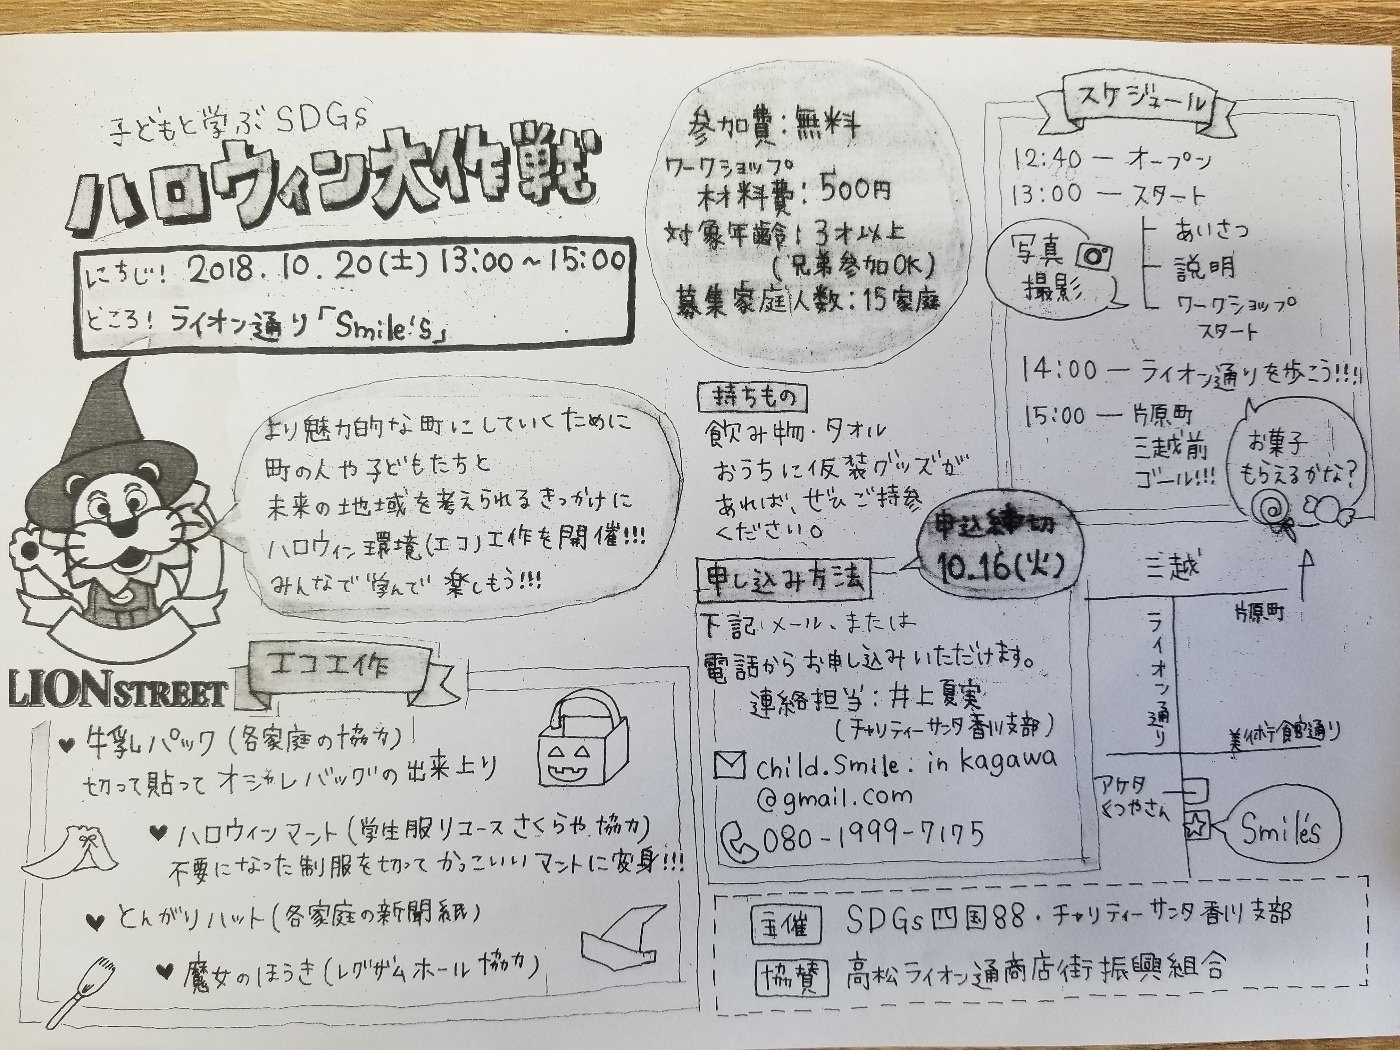 子どもと学ぶSDGs
ハロウィン大作戦
にちじ! 2018.10.20(土) 13:00～15:00
ところ! ライオン通り「Smile's」
より魅力的な町にしていくために
町の人や子どもたちと
未来の地域を考えられるきっかけに
ハロウィン環境(エコ)工作を開催!!!
みんなで学んで楽しもう!!!
LION STREET
エコ工作
♥ 牛乳パック(各家庭の協力)
切って貼ってオシャレバッグの出来上り
♥ ハロウィンマント(学生服リユースさくらや協力)
不要になった制服を切ってかっこいいマントに変身!!!
♥ とんがりハット(各家庭の新聞紙)
♥ 魔女のほうき(レグザムホール協力)
参加費:無料
ワークショップ
材料費:500円
対象年齢:3才以上
(兄弟参加OK)
募集家庭人数:15家庭
持ちもの
飲み物・タオル
おうちに仮装グッズが
あれば、ぜひご持参
ください。
申込締切
10.16(火)
申し込み方法
下記メール、または
電話からお申し込みいただけます。
連絡担当:井上夏実
(チャリティーサンタ香川支部)
child.smile.in kagawa
@gmail.com
080-1999-7175
スケジュール
12:40 ー オープン
13:00 ー スタート
あいさつ
説明
ワークショップ
スタート
写真
撮影
14:00 ー ライオン通りを歩こう!!!
15:00 ー 片原町
三越前
ゴール!!!
お菓子
もらえるかな?
三越
片原町
ライオン通り
美術館通り
アケタ
くつやさん
Smile's
主催 SDGs四国88・チャリティーサンタ香川支部
協賛 高松ライオン通商店街振興組合